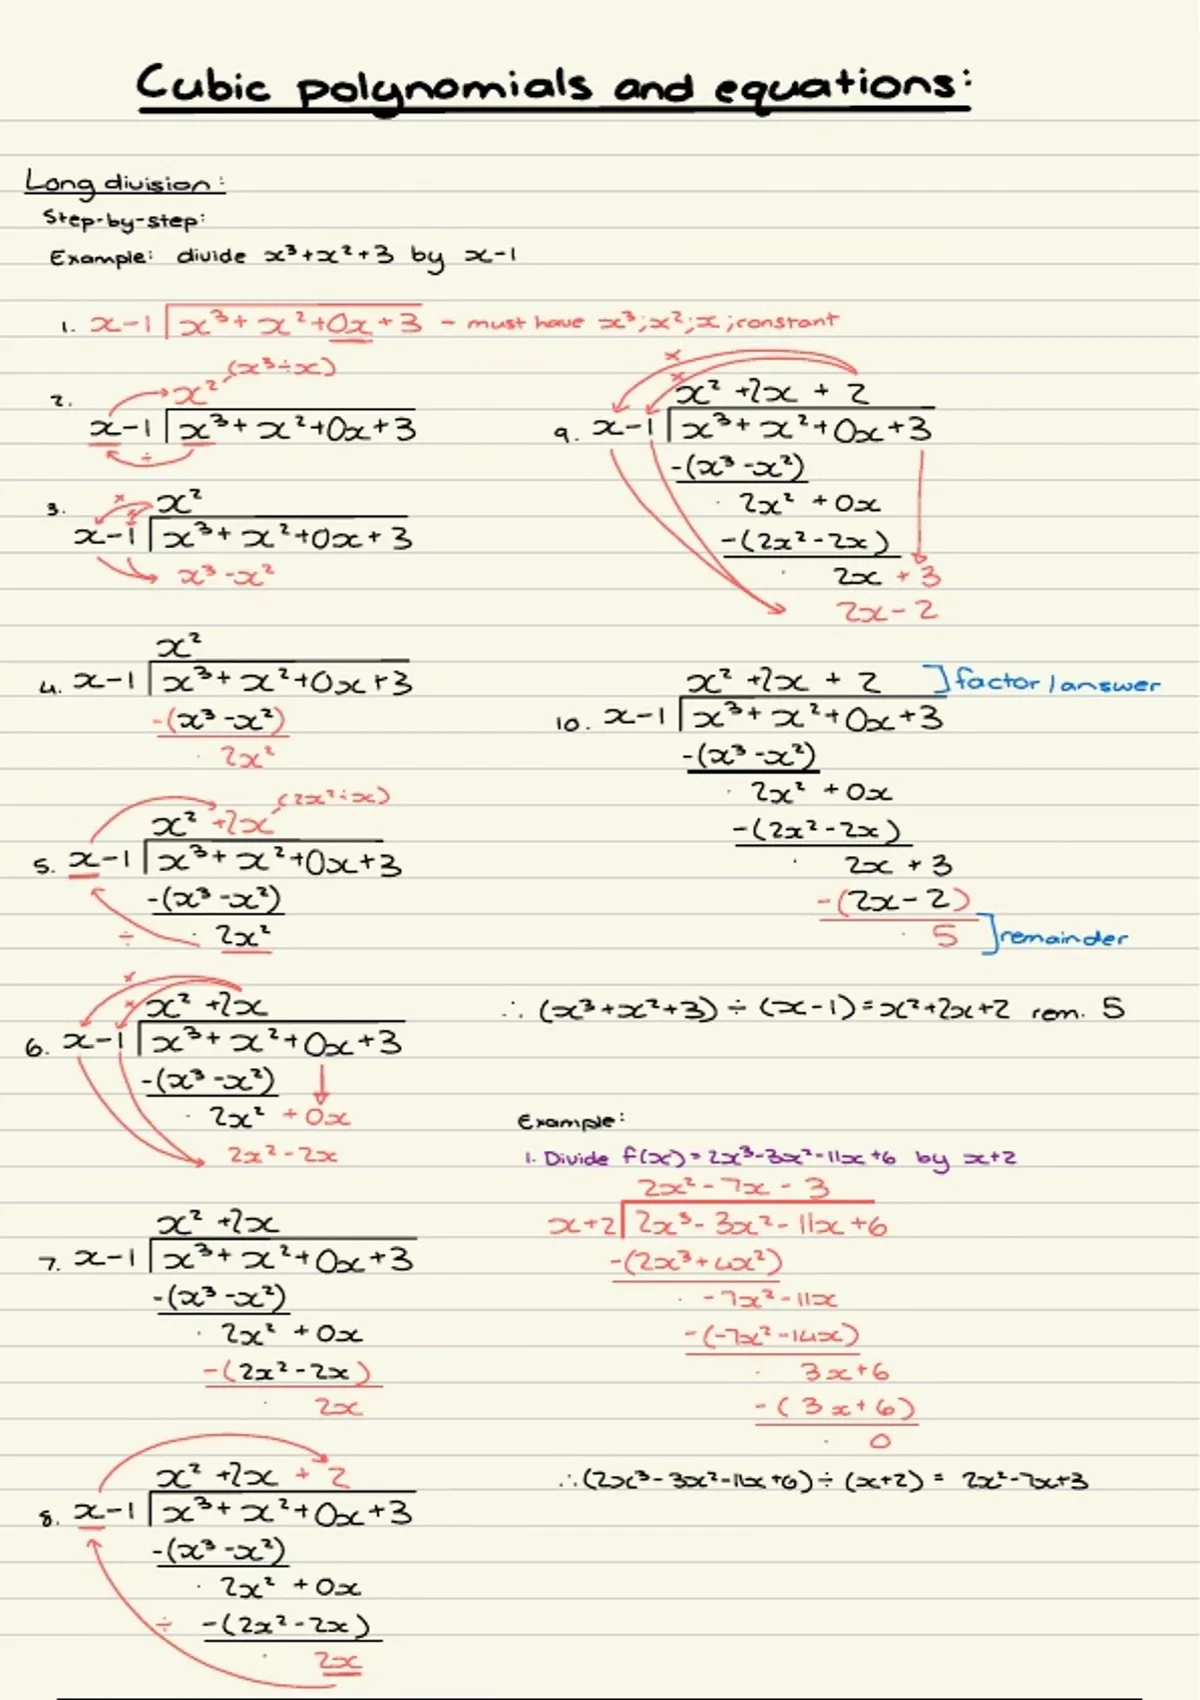 Cubic polynomials and equations:
Long division:
Step-by-step:
Example: divide x³+x²+3 by x-1
1. x-1 | x³+x²+0x+3 - must have x³;x²;x;constant
x² (x³÷x)
2. x-1 | x³+x²+0x+3
÷
x x x²
3. x-1 | x³+x²+0x+3
x³-x²
x²
4. x-1 | x³+x²+0x+3
-(x³-x²)
· 2x²
x² +2x (2x²÷x)
5. x-1 | x³+x²+0x+3
-(x³-x²)
÷ · 2x²
x
x x² +2x
6. x-1 | x³+x²+0x+3
-(x³-x²)
· 2x² + 0x
2x²-2x
x² +2x
7. x-1 | x³+x²+0x+3
-(x³-x²)
· 2x² +0x
-(2x²-2x)
· 2x
x² +2x + 2
8. x-1 | x³+x²+0x+3
-(x³-x²)
· 2x² +0x
÷ -(2x²-2x)
· 2x
x
x
x² +2x + 2
9. x-1 | x³+x²+0x+3
-(x³-x²)
· 2x² +0x
-(2x²-2x)
· 2x + 3
2x-2
x² +2x + 2 ] factor/answer
10. x-1 | x³+x²+0x+3
-(x³-x²)
· 2x² +0x
-(2x²-2x)
· 2x + 3
-(2x-2)
· 5 ] remainder
∴ (x³+x²+3) ÷ (x-1) = x²+2x+2 rem. 5
Example:
1. Divide f(x) = 2x³-3x²-11x+6 by x+2
2x²-7x-3
x+2 | 2x³-3x²-11x+6
-(2x³+4x²)
· -7x²-11x
-(-7x²-14x)
· 3x+6
-(3x+6)
· 0
∴ (2x³-3x²-11x+6) ÷ (x+2) = 2x²-7x+3